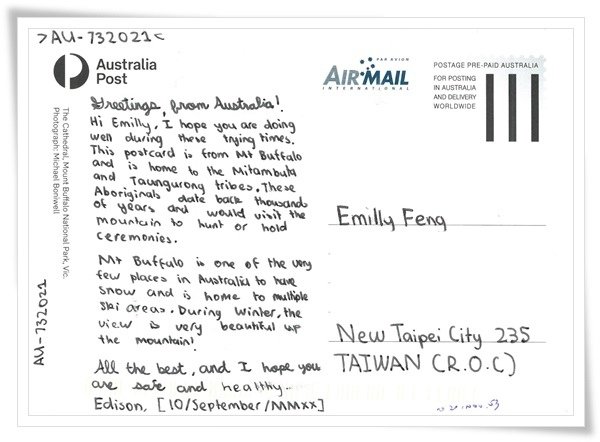 >AU-732021<
Australia
Post
PAR AVION
AIR MAIL
INTERNATIONAL
POSTAGE PRE-PAID AUSTRALIA
FOR POSTING
IN AUSTRALIA
AND DELIVERY
WORLDWIDE
The Cathedral, Mount Buffalo National Park, Vic.
Photograph: Michael Boniwell
AU-732021
Greetings, from Australia!
Hi Emilly, I hope you are doing
well during these trying times.
This postcard is from Mt Buffalo
and is home to the Mitambuta
and Taungurong tribes. These
Aboriginals date back thousands
of years and would visit the
mountain to hunt or hold
ceremonies.
Mt Buffulo is one of the very
few places in Australia to have
snow and is home to multiple
ski areas. During Winter, the
view is very beautiful up
the mountain!
All the best, and I hope you
are safe and healthy
Edison, [10/September/MMXX]
Emilly Feng
New Taipei City 235
TAIWAN (R.O.C)